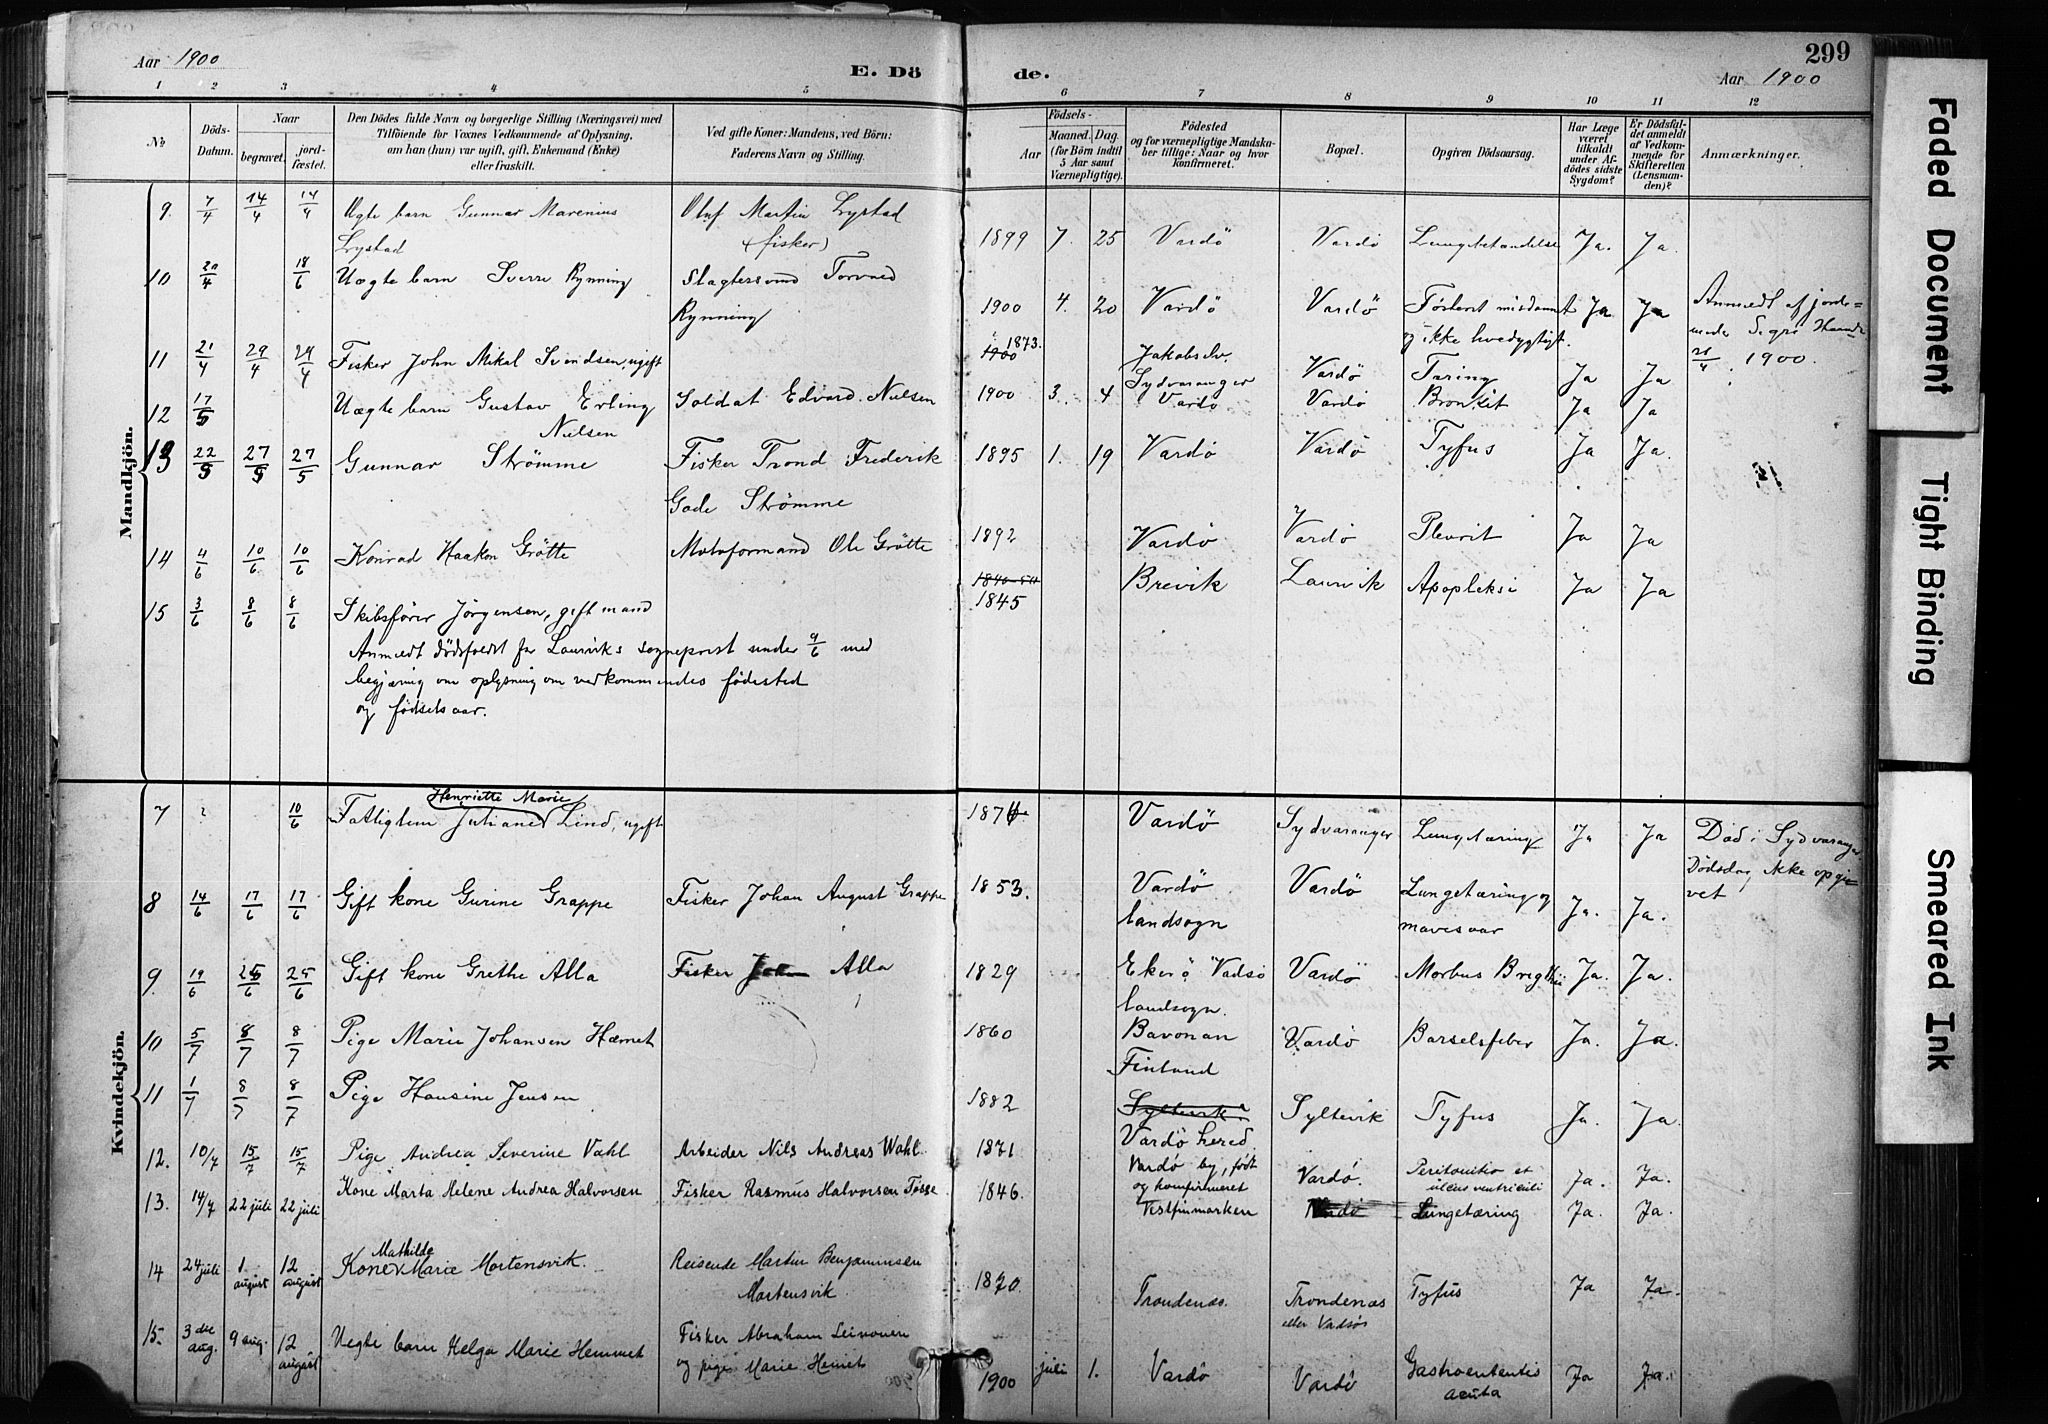 Aar 1900
E. Dö
de.
299
Aar 1900
1 2 3 4 5 6 7 8 9 10 11 12
№
Döds-Datum.
Naar
begravet.
jord-fæstet.
Den Dödes fulde Navn og borgerlige Stilling (Næringsvei) med
Tilföiende for Voxnes Vedkommende af Oplysning,
om han (hun) var ugift, gift, Enkemand (Enke)
eller fraskilt.
Ved gifte Koner: Mandens, ved Börn:
Faderens Navn og Stilling.
Födsels-
Aar
Maaned. Dag.
(for Börn indtil
5 Aar samt
Værnepligtige).
Födested
og for værnepligtige Mandska-
ber tillige: Naar og hvor
konfirmeret.
Bopæl.
Opgiven Dödsaarsag.
Har Læge
været
tilkaldt
under Af-
dödes sidste
Sygdom?
Er Dödsfal-
det anmeldt
af Vedkom-
mende for
Skifteretten
(Lensman-
den)?
Anmærkninger.
Mandkjön.
9. 7/4 14/4 14/4 Ægte barn Gunnar Marenius Oluf Martin Lystad
Lystad (fisker) 1899 7. 25 Vardö Vardö Lungebetændelse Ja. Ja.
10 20/4 18/6 Uægte barn Sverre Rynning Slagtersvend Torvald
Rynning 1900 4. 20 Vardö Vardö Fosteret misdannet Ja Ja Anmeldt af jorde=
og ikke levedygtigt. moder Sigri
11 21/4 29/4 29/4 Fisker John Mikal Svendsen, ugift 1900 1873. Jakobselv. Sydvaranger Vardö Tæring Ja Ja 21/4 1900.
12 17/5 Uægte barn Gustav Erling Soldat Edvard Nielsen 1900 3. 4 Vardö Vardö Bronkit Ja Ja
Nielsen
13 22/5 27/5 27/5 Gunnar Strömme Fisker Trond Frederik 1895 1. 19 Vardö Vardö Tyfus Ja Ja.
Gade Strömme
14 4/6 10/6 10/6 Konrad Haakon Grötte Ole Grötte 1892 Vardö Vardö Plevrit Ja Ja
15 3/6 8/6 8/6 Skibsförer Jörgensen, gift mand 1845 Brevik Laurvik Apopleksi Ja Ja
Anmeldt dödsfaldet for Laurviks sogneprest under 9/6 med
begjæring om oplysning om vedkommendes födested
og födselsaar.
Kvindekjön.
Henriette Marie
7 10/6 Fattiglem Juliane Lind, ugift Vardö Sydvaranger Lungetæring Ja Ja Död i Sydvaranger
Dödsdag ikke opgi-
vet
8 14/6 17/6 17/6 Gift kone Gurine Grappe Fisker Johan August Grappe 1853. Vardö landsogn Vardö Lungetæring og mavesaar Ja. Ja.
9. 19/6 25/6 25/6 Gift kone Grethe Alla Fisker Alla 1829 Ekerö Vadsö landsogn. Vardö Morbus Brigthii Ja. Ja.
10 5/7 8/7 8/7 Pige Marie Johansen Hæmet 1860 Bavonan Finland Vardö Barselsfeber Ja. Ja.
11 1/7 8/7 8/7 Pige Hansine Jensen 1882 Syltevik Vardö hered. Syltevik Tyfus Ja. Ja.
12. 10/7 15/7 15/7 Pige Andrea Severine Vahl Arbeider Nils Andreas Wahl. 1871 Vardö by, födt og konfirmeret Vardö. Peritonitis et ulcus ventriculi Ja. Ja.
13. 14/7 22 juli 22 juli Kone Marta Helene Andrea Halvorsen Fisker Rasmus Halvorsen Tosse 1846. Vestfinmarken Vardö Lungetæring Ja. Ja.
Mathilde
14 24 juli 1 august 12 august Kone Marie Mortensvik. Reisende Martin Benjaminsen Mortensvik 1870. Trondenæs. Trondenæs eller Vadsö Tyfus Ja Ja.
15. 3die aug. 9 aug. 12 august Uegte barn Helga Marie Hemmet Fisker Abraham Leinonen
og pige Marie Hemet 1900 juli 1. Vardö Vardö Gastroenteritis acuta Ja Ja.
Faded Document
Tight Binding
Smeared Ink